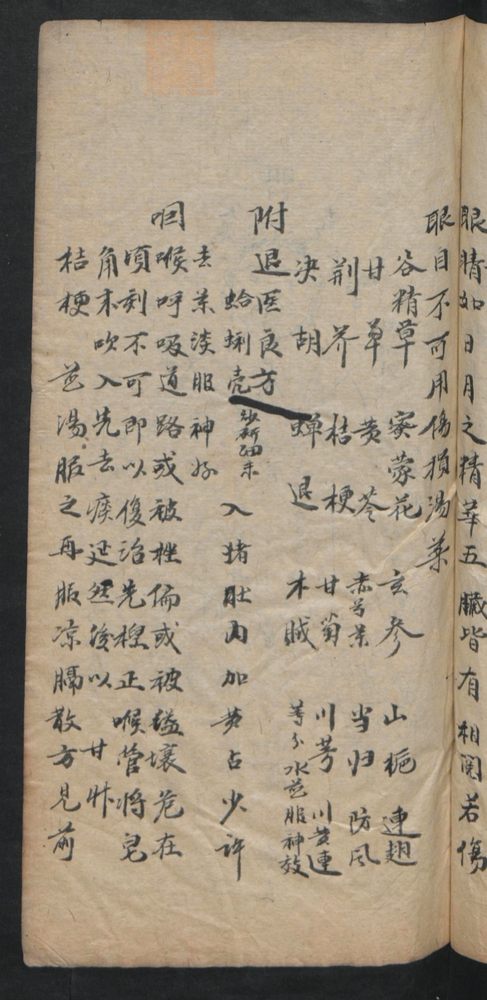 眼睛如日月之精華五臟皆有相関若傷
眼目不可用傷損湯藥
谷精草 密蒙花 玄参 山枙 連翅
甘草 黄芩 赤芍 当归 防风
荆芥 桔梗 甘菊 川芎 川黄連
决胡 蝉退 木贼 等分水煎服神效
附退医良方
蛤蜊壳 细末 入猪肚内加黄占少許
去药淡服神好
咽喉呼吸道路或被挫偏或被搕壞危在
頃刻不可即以復治先捏正喉管將皂
角末吹入先去痰涎然後以甘艸
桔梗煎湯服之再服凉膈散方見前